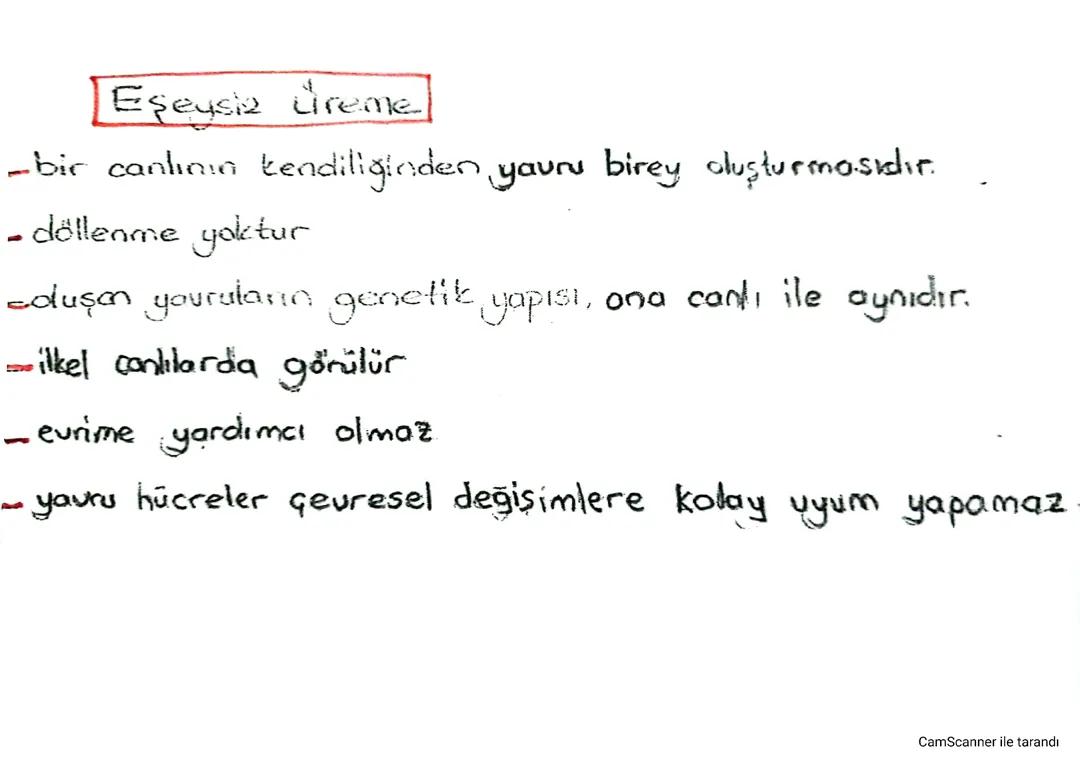 Eşeysiz üreme
- bir canlının kendiliğinden yavru birey oluşturmasıdır.
- döllenme yoktur
- oluşan yavruların genetik yapısı, ana canlı ile aynıdır.
- ilkel canlılarda görülür
- evrime yardımcı olmaz
- yavru hücreler çevresel değişimlere kolay uyum yapamaz.
CamScanner ile tarandı